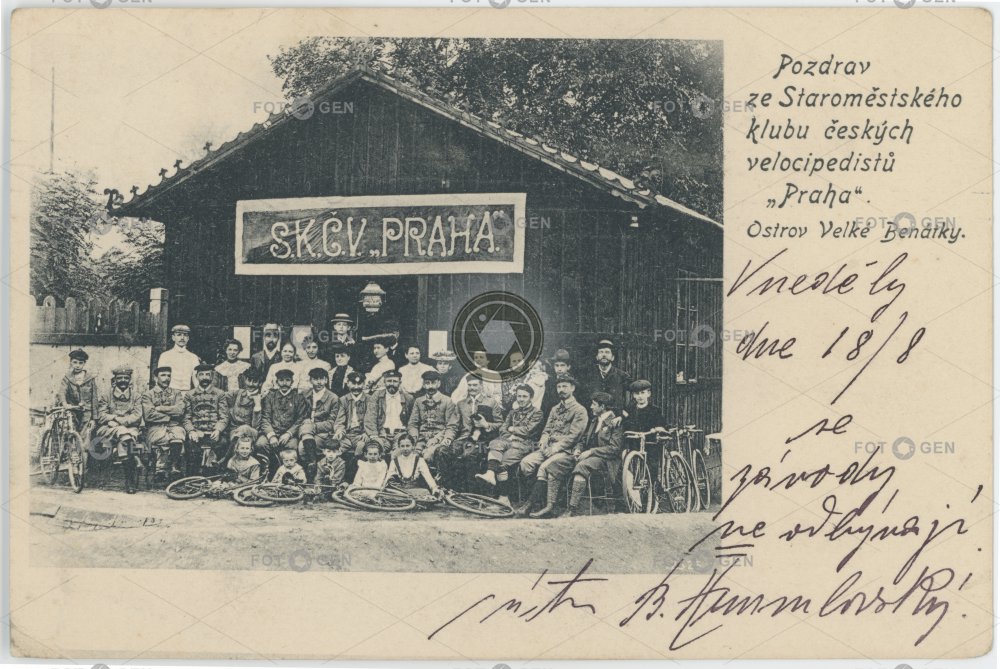 S.K.Č.V. „PRAHA.“
Pozdrav
ze Staroměstského
klubu českých
velocipedistů
„Praha“.
Ostrov Velké Benátky.
V neděly
dne 18/8
se
závody
ne odbývají.
B.
FOTOGEN